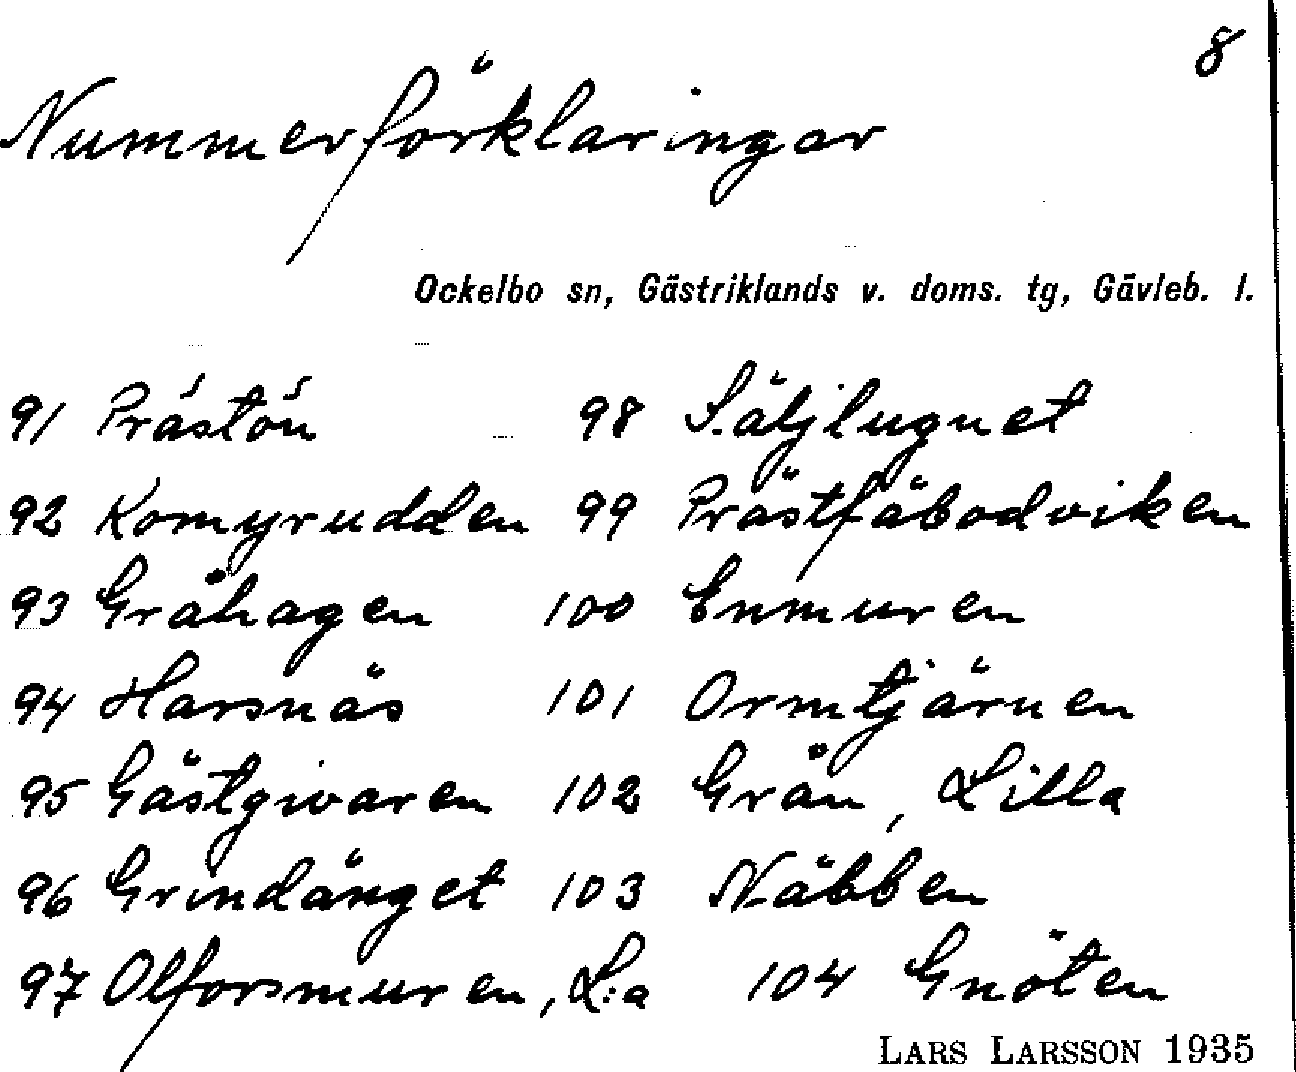 8
Nummerförklaringar
Ockelbo sn, Gästriklands v. doms. tg, Gävleb. l.
91 Prästön 98 Säljlugnet
92 Komyrudden 99 Prästfäbodviken
93 Gråhagen 100 Enmuren
94 Harsnäs 101 Ormtjärnen
95 Gästgivaren 102 Grån, Lilla
96 Grindänget 103 Näbben
97 Olforsmuren, L:a 104 Gnöten
LARS LARSSON 1935